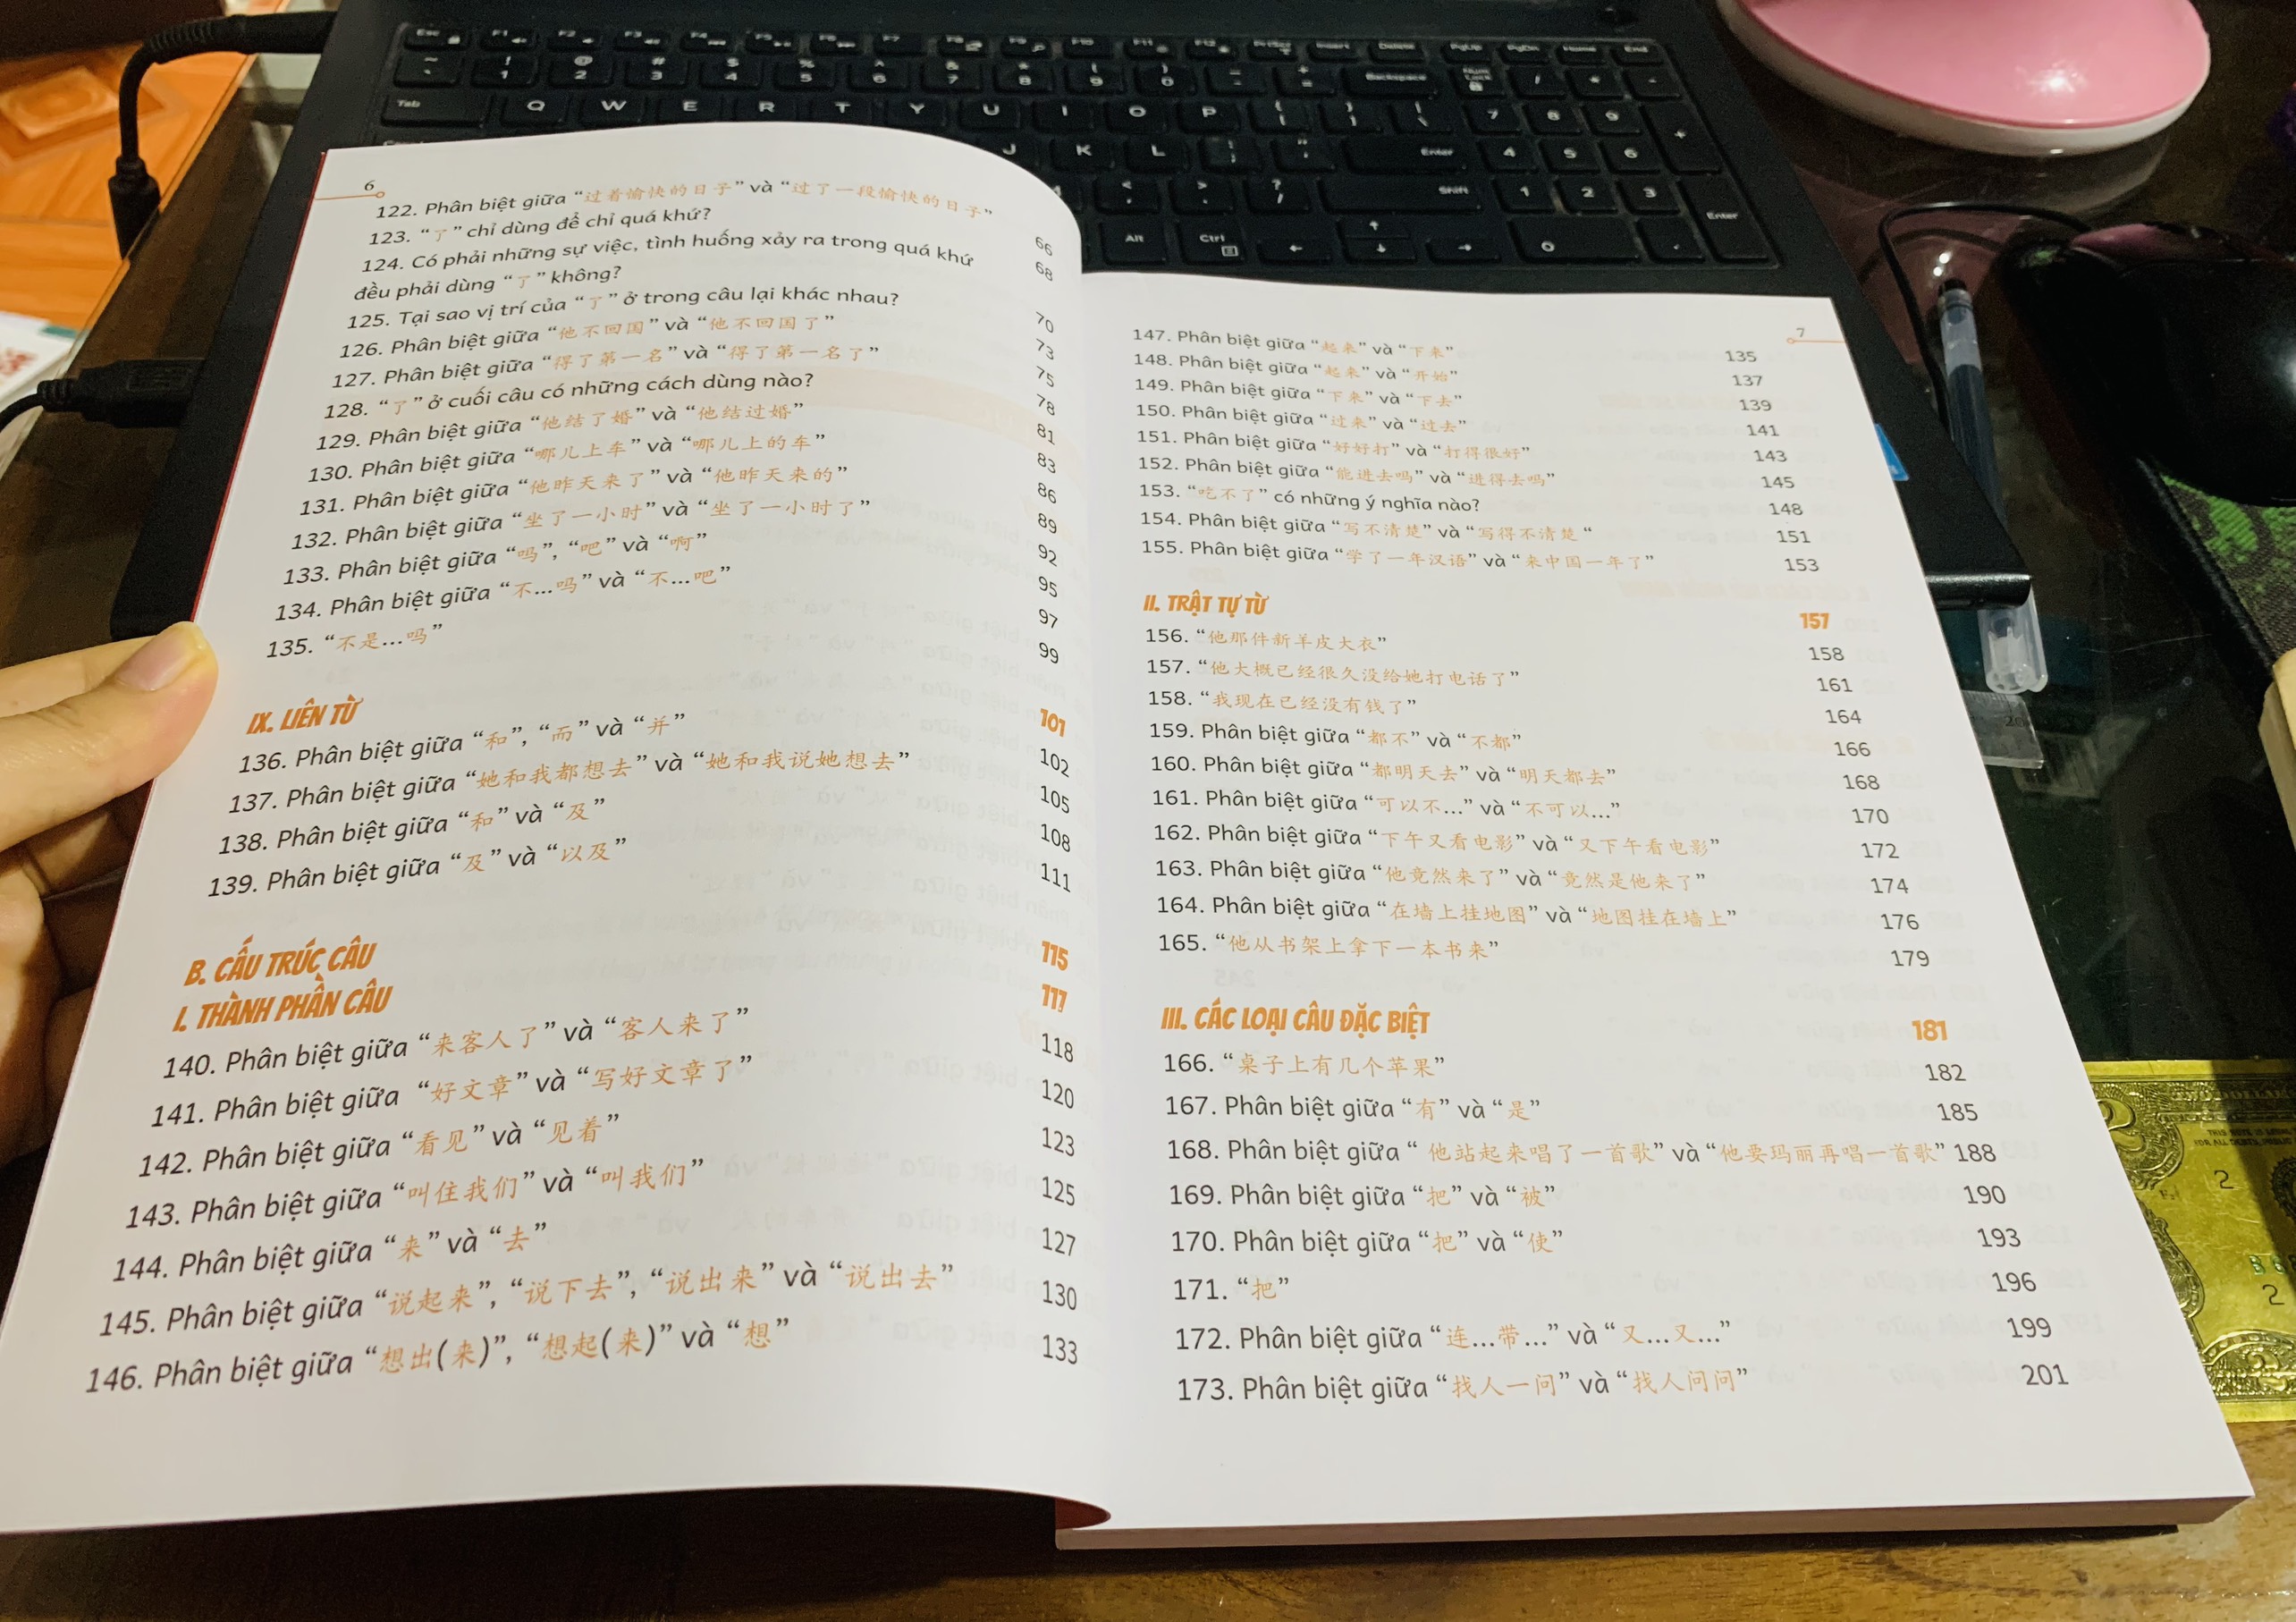 6
122. Phân biệt giữa “过着愉快的日子” và “过了一段愉快的日子” 66
123. “了” chỉ dùng để chỉ quá khứ? 68
124. Có phải những sự việc, tình huống xảy ra trong quá khứ
đều phải dùng “了” không? 70
125. Tại sao vị trí của “了” ở trong câu lại khác nhau? 73
126. Phân biệt giữa “他不回国” và “他不回国了” 75
127. Phân biệt giữa “得了第一名” và “得了第一名了” 78
128. “了” ở cuối câu có những cách dùng nào? 81
129. Phân biệt giữa “他结了婚” và “他结过婚” 83
130. Phân biệt giữa “哪儿上车” và “哪儿上的车” 86
131. Phân biệt giữa “他昨天来了” và “他昨天来的” 89
132. Phân biệt giữa “坐了一小时” và “坐了一小时了” 92
133. Phân biệt giữa “吗”, “吧” và “啊” 95
134. Phân biệt giữa “不...吗” và “不...吧” 97
135. “不是...吗” 99
IX. LIÊN TỪ 101
136. Phân biệt giữa “和”, “而” và “并” 102
137. Phân biệt giữa “她和我都想去” và “她和我说她想去” 105
138. Phân biệt giữa “和” và “及” 108
139. Phân biệt giữa “及” và “以及” 111
B. CẤU TRÚC CÂU 115
I. THÀNH PHẦN CÂU 117
140. Phân biệt giữa “来客人了” và “客人来了” 118
141. Phân biệt giữa “好文章” và “写好文章了” 120
142. Phân biệt giữa “看见” và “见着” 123
143. Phân biệt giữa “叫住我们” và “叫我们” 125
144. Phân biệt giữa “来” và “去” 127
145. Phân biệt giữa “说起来”, “说下去”, “说出来” và “说出去” 130
146. Phân biệt giữa “想出(来)”, “想起(来)” và “想” 133
7
147. Phân biệt giữa “起来” và “下来” 135
148. Phân biệt giữa “起来” và “开始” 137
149. Phân biệt giữa “下来” và “下去” 139
150. Phân biệt giữa “过来” và “过去” 141
151. Phân biệt giữa “好好打” và “打得很好” 143
152. Phân biệt giữa “能进去吗” và “进得去吗” 145
153. “吃不了” có những ý nghĩa nào? 148
154. Phân biệt giữa “写不清楚” và “写得不清楚“ 151
155. Phân biệt giữa “学了一年汉语” và “来中国一年了” 153
II. TRẬT TỰ TỪ 157
156. “他那件新羊皮大衣” 158
157. “他大概已经很久没给她打电话了” 161
158. “我现在已经没有钱了” 164
159. Phân biệt giữa “都不” và “不都” 166
160. Phân biệt giữa “都明天去” và “明天都去” 168
161. Phân biệt giữa “可以不...” và “不可以...” 170
162. Phân biệt giữa “下午又看电影” và “又下午看电影” 172
163. Phân biệt giữa “他竟然来了” và “竟然是他来了” 174
164. Phân biệt giữa “在墙上挂地图” và “地图挂在墙上” 176
165. “他从书架上拿下一本书来” 179
III. CÁC LOẠI CÂU ĐẶC BIỆT 181
166. “桌子上有几个苹果” 182
167. Phân biệt giữa “有” và “是” 185
168. Phân biệt giữa “ 他站起来唱了一首歌” và “他要玛丽再唱一首歌” 188
169. Phân biệt giữa “把” và “被” 190
170. Phân biệt giữa “把” và “使” 193
171. “把” 196
172. Phân biệt giữa “连...带...” và “又...又...” 199
173. Phân biệt giữa “找人一问” và “找人问问” 201